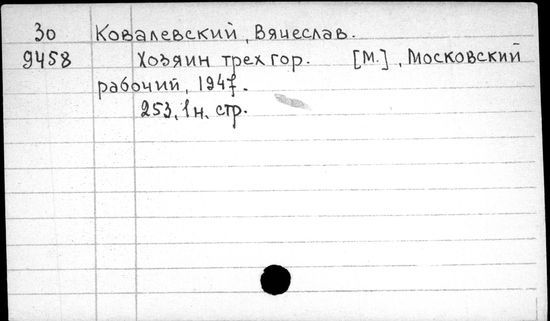 30 Ковалевский, Вячеслав.
9458 Хозяин трех гор. [М.], Московский
рабочий, 1947.
253, 1 н. стр.